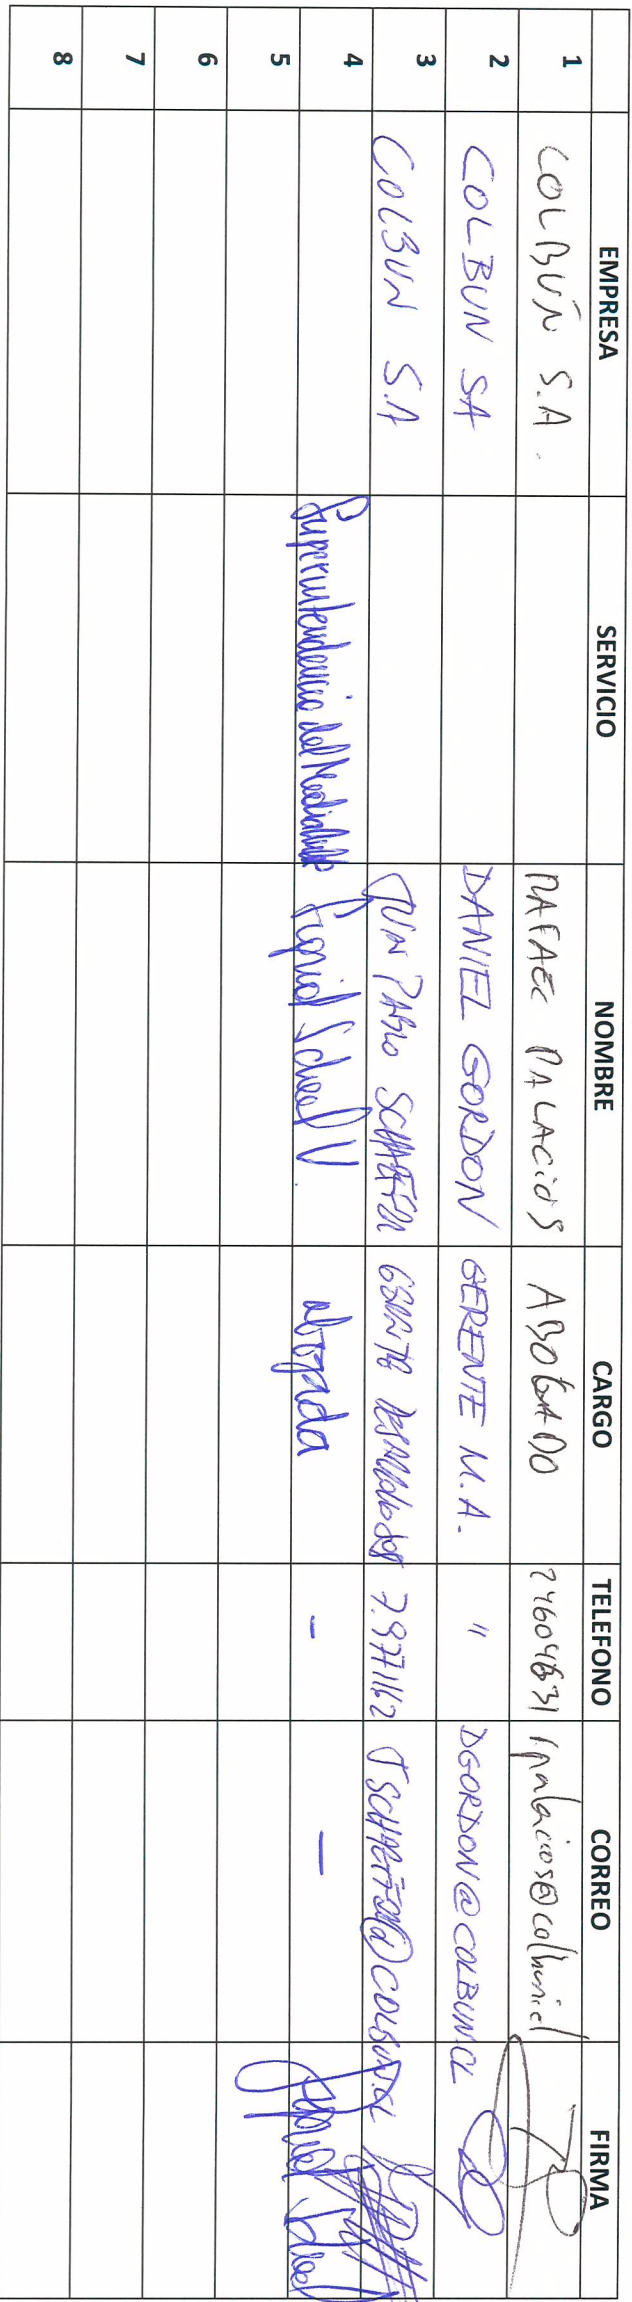 EMPRESA SERVICIO NOMBRE CARGO TELEFONO CORREO FIRMA
1 COLBÚN S.A. RAFAEL PALACIOS ABOGADO 24604631 rpalacios@colbun.cl
2 COLBUN SA DANIEL GORDON GERENTE M.A. " DGORDON@COLBUN.CL
3 COLBUN S.A JUAN PABLO SCHAEFFER GERENTE 7.971162 JSCHAEFFER@COLBUN.CL
4 Superintendencia del Medio Ambiente Sigrid Scheel V. abogada - -
5
6
7
8